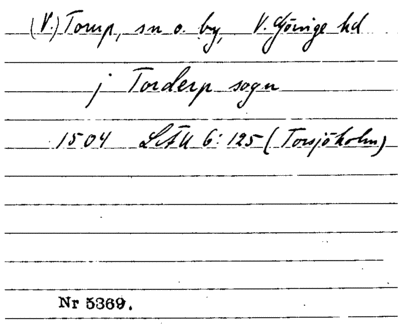 (V.) Torup, sn o. by, V. Göinge hd
j Torderp sogn
1504 LÅU 6: 125 (Torsjöholm)
Nr 5369.